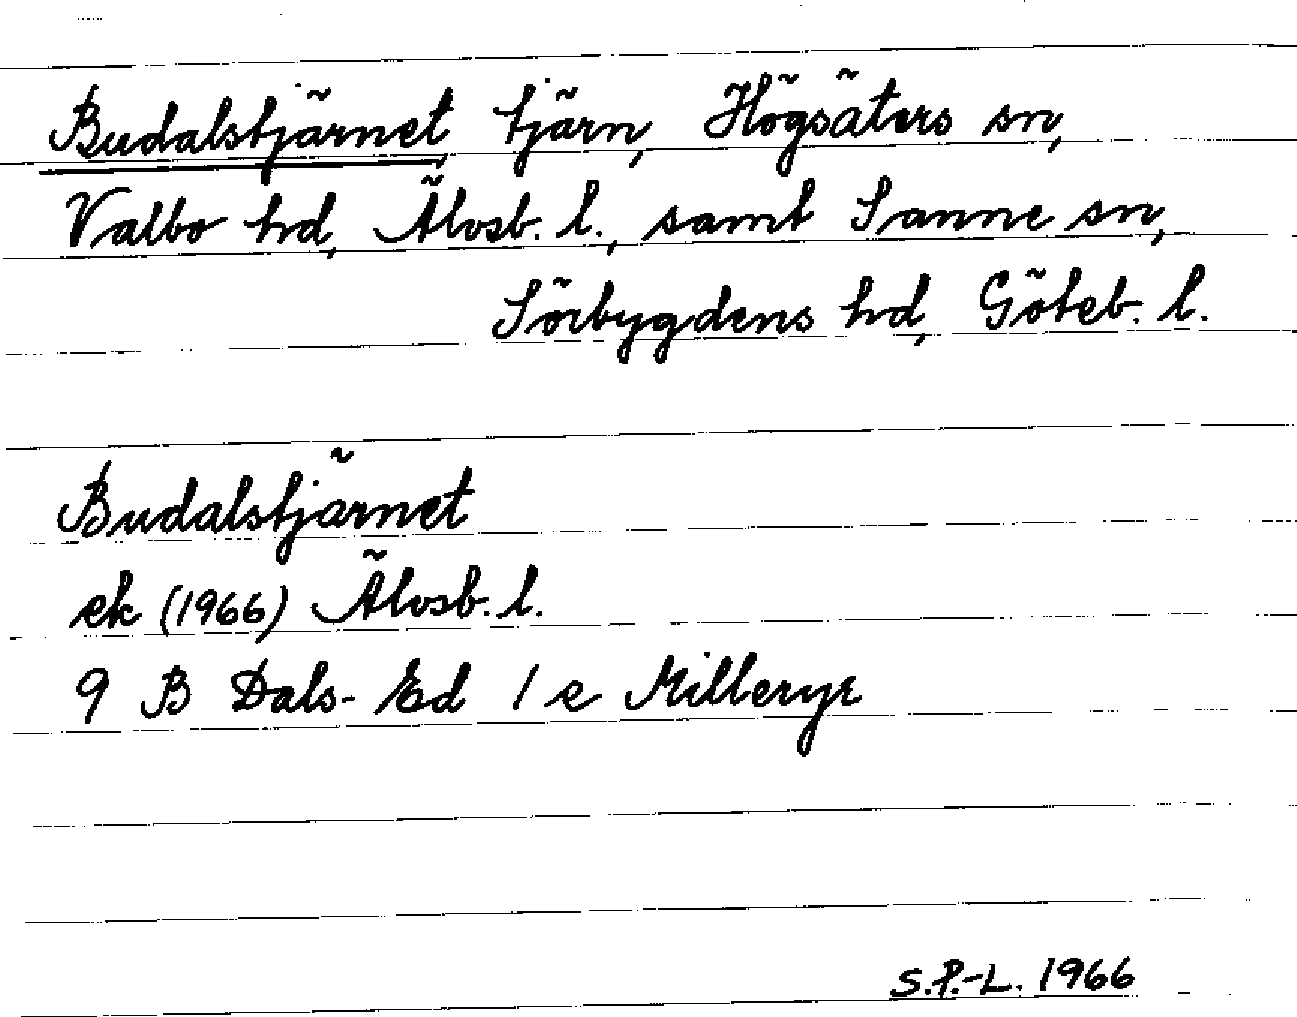 Budalstjärnet, tjärn, Högsäters sn,
Valbo hd, Älvsb. l., samt Sanne sn,
Sörbygdens hd, Göteb. l.
Budalstjärnet
ek (1966) Älvsb. l.
9 B Dals-Ed 1 e Milleryr
S.P.-L. 1966